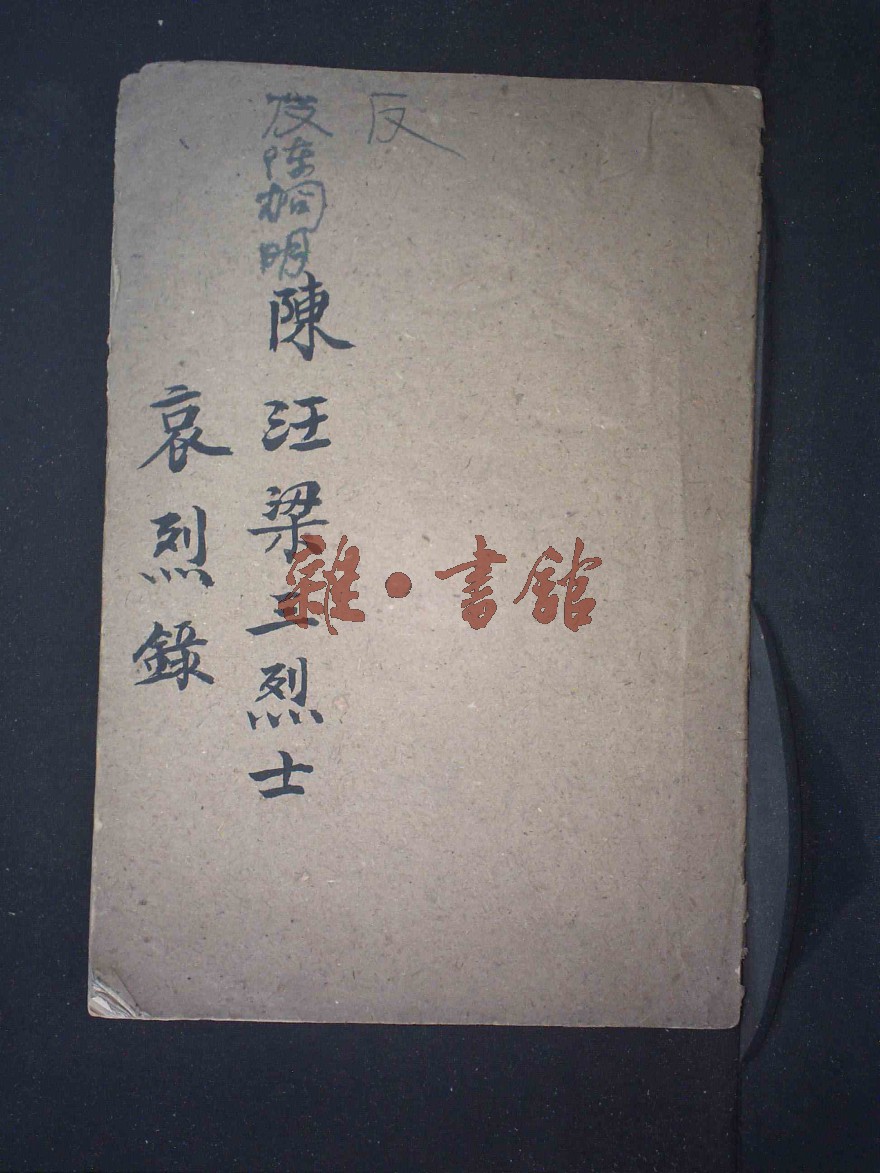 反
反陈炯明
陳汪梁三烈士
哀烈錄
雜·書館